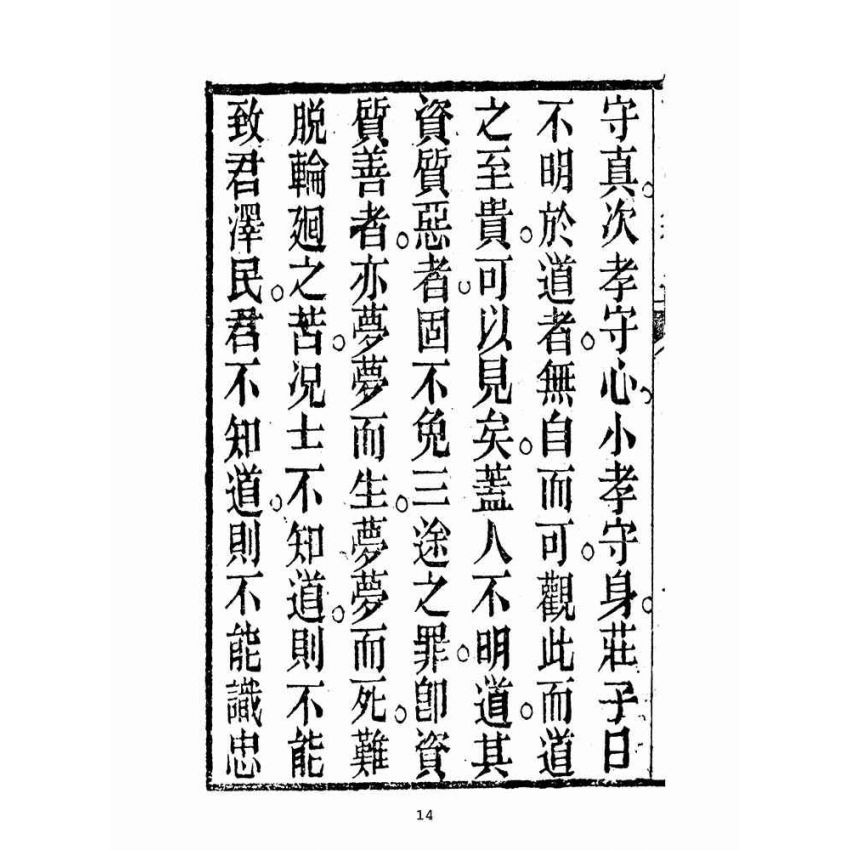 守真。次孝守心。小孝守身。莊子曰
不明於道者。無自而可。觀此而道
之至貴。可以見矣。蓋人不明道。其
資質惡者。固不免三途之罪。卽資
質善者。亦夢夢而生。夢夢而死。難
脫輪廻之苦。况士不知道。則不能
致君澤民。君不知道。則不能識忠
14